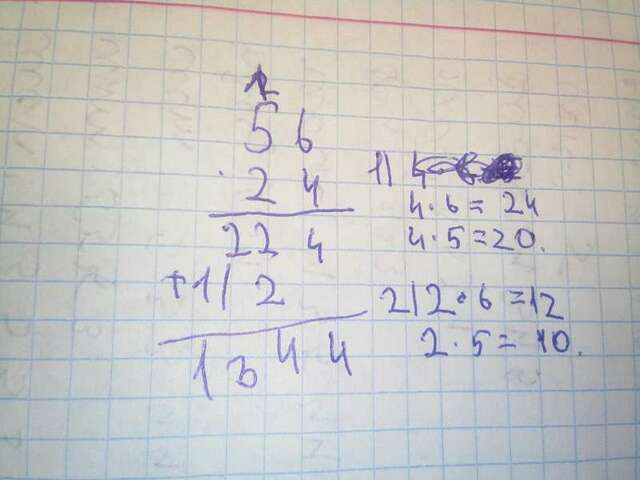 56
· 24
224
+112
1344
1)
4·6=24
4·5=20.
2) 2·6=12
2·5=10.